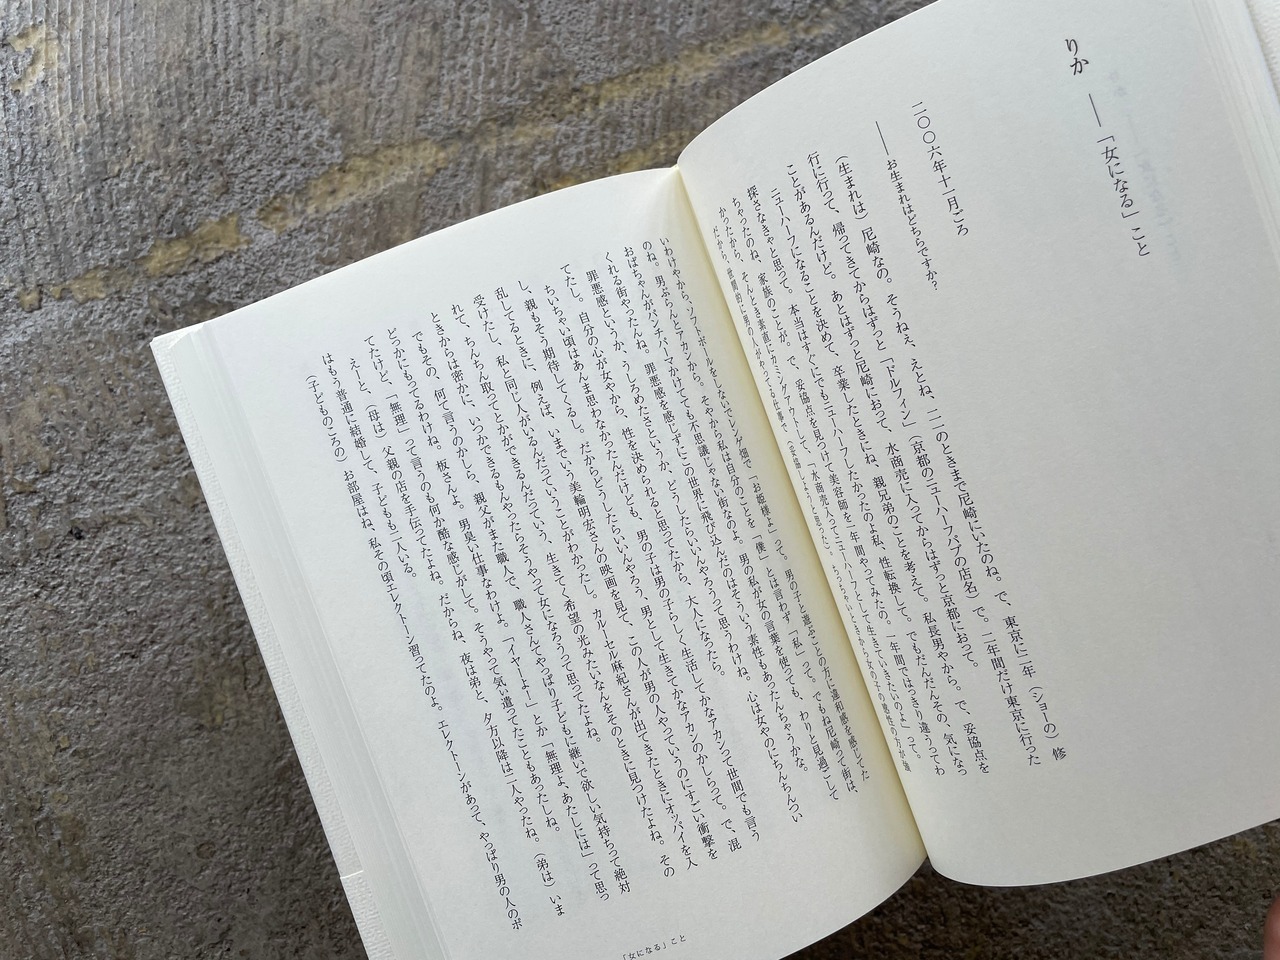 りか ――「女になる」こと
二〇〇六年十一月ごろ
――お生まれはどちらですか?
(生まれは)尼崎なの。そうねえ、えとね、二二のときまで尼崎にいたのね。で、東京に二年(ショーの)修
行に行って、帰ってきてからはずっと「ドルフィン」(京都のニューハーフパブの店名)で。二年間だけ東京に行った
ことがあるんだけど。あとはずっと尼崎におって、水商売に入ってからはずっと京都におって。
ニューハーフになることを決めて、卒業したときにね、親兄弟のことを考えて。私長男やから。で、妥協点を
探さなきゃと思って。本当はすぐにでもニューハーフしたかったのよ私、性転換して。でもだんだんその、気になっ
ちゃったのね、家族のことが。で、妥協点を見つけて美容師を一年間やってみたの。一年間ではっきり違うってわ
かったから、そんとき素直にカミングアウトして、「水商売入ってニューハーフとして生きていきたいのよ」って。
だから、世間的に男の人がやってる仕事で(妥協しようと思った)。ちっちゃいときから女の子の感性の方が強
いわけやから、ソフトボールをしないでレンゲ畑で「お姫様よ」って。男の子と遊ぶことの方に違和感を感じてた
のね。男ぶらんとアカンから。そやから私は自分のことを「僕」とは言わず「私」って。でもね尼崎って街は、
おばちゃんがパンチパーマかけてても不思議じゃない街なのよ。男の私が女の言葉を使っても、わりと見過ごして
くれる街やったんね。罪悪感を感じずにこの世界に飛び込んだのはそういう素性もあったんちゃうかな。
罪悪感というか、うしろめたさというか、どうしたらいいんやろうって思うわけね。心は女やのにちんちんつい
てたし。自分の心が女やから、性を決められると思ってたから、大人になったら。
ちいちゃい頃はあんま思わなかったんだけども、男の子は男の子らしく生活してかなアカンって世間でも言う
し、親もそう期待してくるし。だからどうしたらいいんやろう、男として生きてかなアカンのかしらって。で、混
乱してるときに、例えば、いまでいう美輪明宏さんの映画を見て、この人が男の人やっていうのにすごい衝撃を
受けたし、私と同じ人がいるんだっていうことがわかったし。カルーセル麻紀さんが出てきたときにオッパイを入
れて、ちんちん取ってとかができるんだっていう、生きてく希望の光みたいなんをそのときに見つけたよね。その
ときからは密かに、いつかできるもんやったらそうやって女になろうって思ってたよね。
でもその、何て言うのかしら、親父がまた職人で、職人さんてやっぱり子どもに継いで欲しい気持ちって絶対
どっかにもってるわけね。板さんよ。男臭い仕事なわけよ。「イヤーよー」とか「無理よ、あたしには」って思っ
てたけど、「無理」って言うのも何か酷な感じがして。そうやって気い遣ってたこともあったしね。
えーと、(母は)父親の店を手伝ってたよね。だからね、夜は弟と、夕方以降は二人やったね。(弟は)いま
はもう普通に結婚して、子どもも二人いる。
(子どものころの)お部屋はね、私その頃エレクトーン習ってたのよ。エレクトーンがあって、やっぱり男の人のポ
「女になる」こと